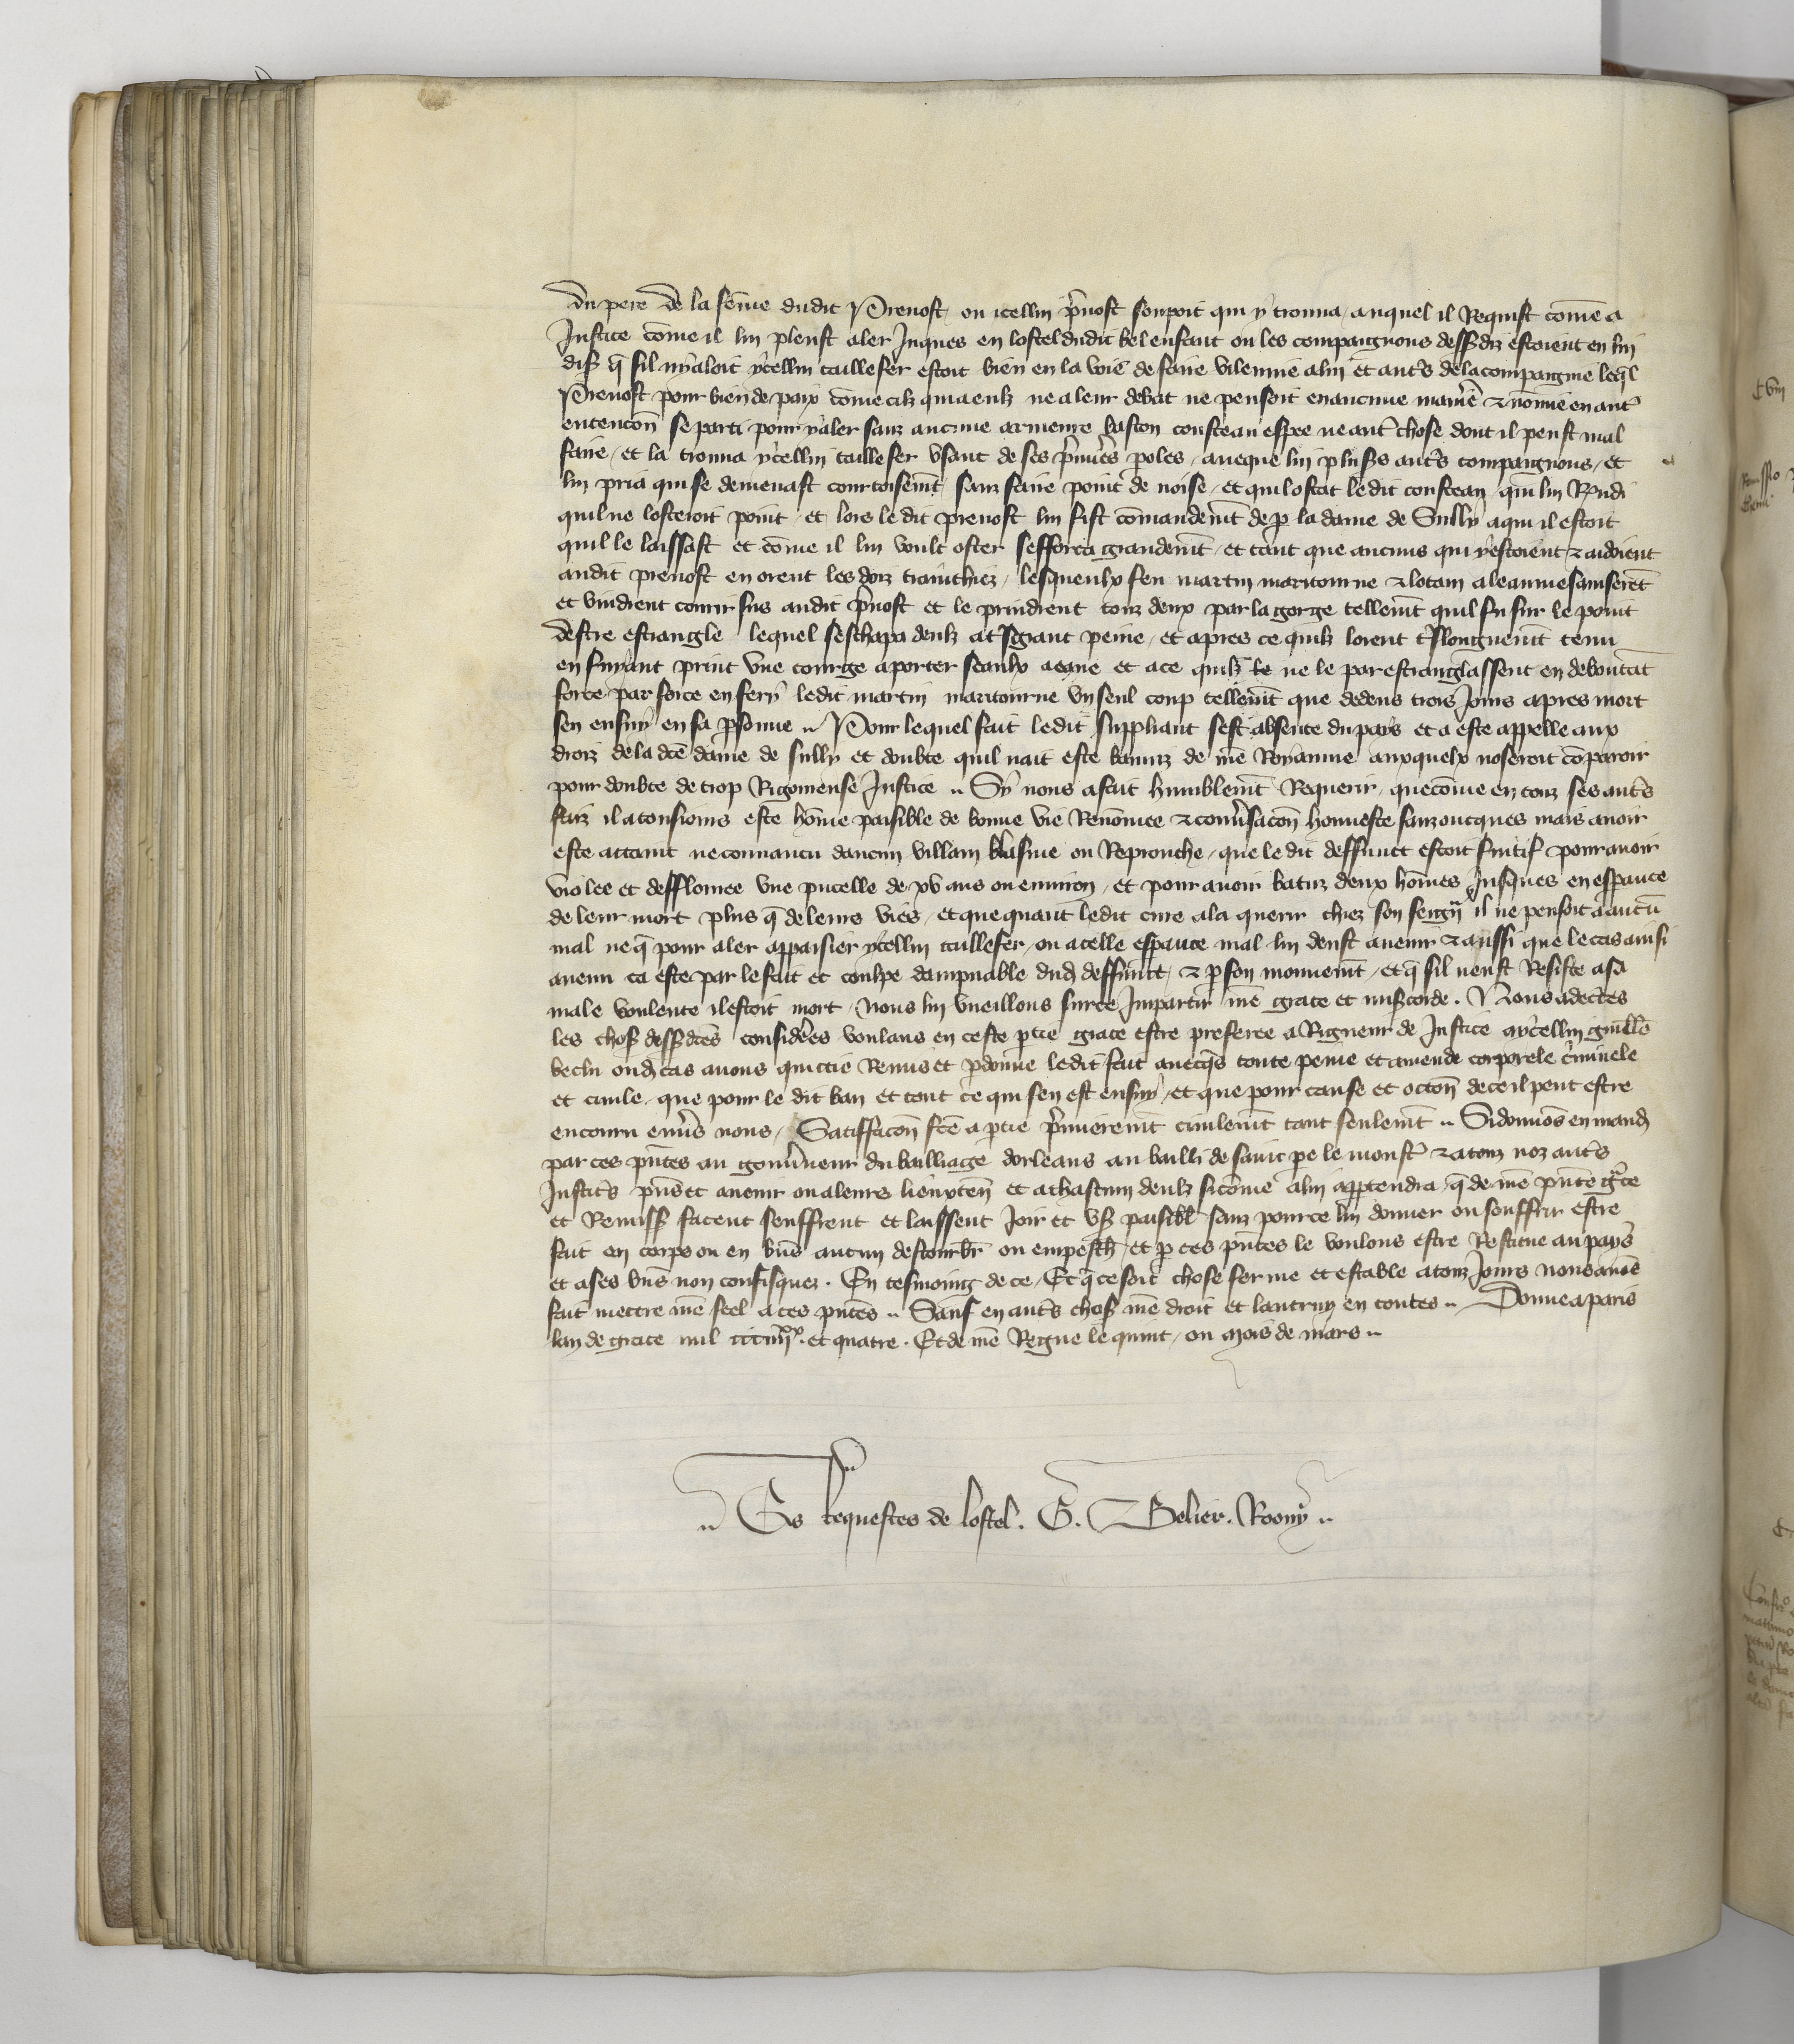 du pere de la fēme dudit Prevost / ou icellui p̄vost soupoit qui y trouva / auquel il Requist com̄e a
Justice com̄e il lui pleust aler Jusques en lostel dudit bel enfant ou les compaignons dessusdiz estoient en lui
dis̄ q̄ sil ny aloit ycellui taillefer estoit bien en la voie de faire vilennie a lui et aut̄s de la compaignie leq̄l
Prevost pour bien de paix com̄e cilz qui a eulz ne a leur debat ne pensoit en aucune manie᷑ & nom̄ie en aut᷑
entencōn se parti pour y aler sanz aucune armeure baston cousteau espee ne aut᷑ chose dont il peust mal
faire / et la trouva ycellui taillefer usant de ses p̄mie᷑s p̄oles / aveque lui plus᷑s aut᷑s compaignons / et
lui pria qui se demenast courtoisem̄t sanz faire point de noise / et qui lostat le dit cousteau / qui lui R̄ndi
quil ne losteroit point / et lors le dit prevost lui fist com̄andem̄t de p̄ la dame de Sully a qui il estoit
quil le laissast et com̄e il lui voult oster sefforca grandem̄t / et tant que aucuns qui y estoient & aidoient
audit prevost en orent les doiz trainchiez / lesqueulx feu martin maritourne & lotain aleaume saiserēt
et vindrent courir sus audit p̄vost et le prindrent touz deux par la gorge tellem̄t quil fu sur le point
destre estrangle lequel seschapa deulz a tsgrant peine / et apres ce quilz lorent t᷑slonguem̄t tenu
en fuyant print une courge a porter seaulx a eaue et a ce quilz le ne le parestranglassent en deboutāt
force par force en fery ledit martin maritourne un seul coup tellem̄t que dedens trois Jours apres mort
sen ensuy en sa p̄sonne .. Pour lequel fait ledit suppliant sest absente du pays et a este appelle aux
droiz de la dc̄e dame de sully et doubte quil nait este banniz de n̄re Royaume auxquelx noseroit com̄paroir
pour doubte de trop Rigoureuse Justice .. Sy nous a fait humblem̄t Requerir / que com̄e en touz ses aut᷑s
faiz il a tousiours este hom̄e paisible de bonne vie Renom̄ee & conv᷑sacōn honneste sanz oncques mais avoir
este attaint ne convaincu daucun villain blasme ou Reprouche / que le dit deffunct estoit fuitif & pour avoir
violee et defflouree une pucelle de xv ans ou environ / et pour avoir batuz deux hom̄es Jusques en esp̄ance
de leur mort plus q̄ de leurs vies / et que quant ledit cure ala querir chiez son seign̄ il ne pensoit a aucū
mal ne q̄ pour aler appaisier ycellui taillefer / ou a celle esp̄ance mal lui deust avenir & aussi que le cas ainsi
avenu ca este par le fait et coulpe dampnable dud̄ deffunct / & p̄ son mouvem̄t / et q̄ sil neust Resiste a sa
male voulente il estoit mort / nous lui vueillons sur ce Jmpartir n̄re grace et mis̄corde . Nous adectes
les chos̄ dess̄ dc̄es consider᷑es voulans en ceste p̄tie grace estre preferee a Rigueur de Justice a ycellui guill̄e
beclu oud̄ cas avons quictie Remis et p̄donne ledit fait aueq̄s toute peine et amende corporele c᷑minele
et civile / que pour le dit ban et tout ce qui sen est ensuy / et que pour cause et occōn de ce il peut estre
encouru env᷑s nous / Satiffacōn fc̄e a p̄tie p̄mierem̄t civilem̄t tant seulem̄t .. Si donnōs en mand̄
par ces p̄ntes au gouv᷑neur du bailliage dorleans au bailli de saint p̄e le moust᷑ & a touz noz aut᷑s
Justic᷑s p̄ns̄ et avenir ou a leurs lieuxten̄ et a chascun deulz si com̄e a lui app̄tendra / q̄ de n̄re p̄nte gr̄ce
et Remiss̄ facent seuffrent et laissent Joir et us̄ paisibl̄ sanz pource lui donner ou souffrir estre
fait en corps ou en biēs aucun destourb᷑r ou empesch̄ / et p̄ ces p̄ntes le voulons estre Restitue au pays
et a ses biēs non confisquez . En tesmoing de ce / Et q̄ ce soit chose ferme et estable a touz Jours nous avōs
fait mettre n̄re seel a ces p̄ntes .. Sauf en aut᷑s chos̄ n̄re droit et lautruy en toutes .. Donne a paris
lan de grace mil ccciiijˣˣ . et quatre . Et de n̄re Regne le quint / ou mois de mars ..
.. Es Requestes de lostel . G. Belier . Roony ..